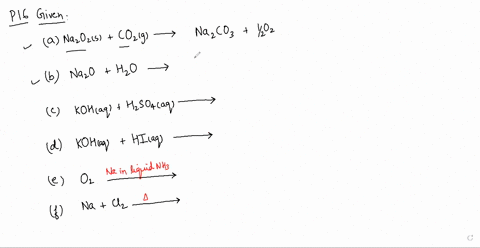 P16 Given:
(a) Na₂O₂(s) + CO₂(g) → Na₂CO₃ + ½O₂
(b) Na₂O + H₂O →
(c) KOH(aq) + H₂SO₄(aq) →
(d) KOH(aq) + HI(aq) →
(e) O₂ Na in liquid NH₃ →
(f) Na + Cl₂ Δ →